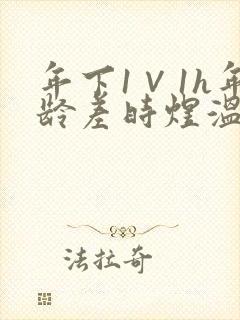 年下1V1h年
龄差时煜温
法拉奇